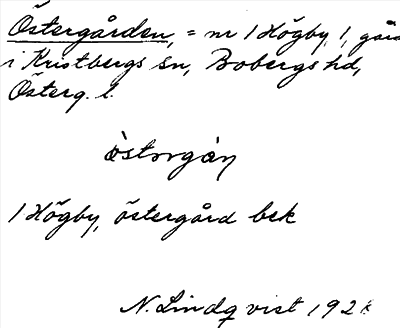 Östergården, = nr 1 Högby, 1, gård
i Kristbergs sn, Bobergs hd,
Österg. l.
östərgån
1 Högby, östergård bek
N. Lindqvist 192